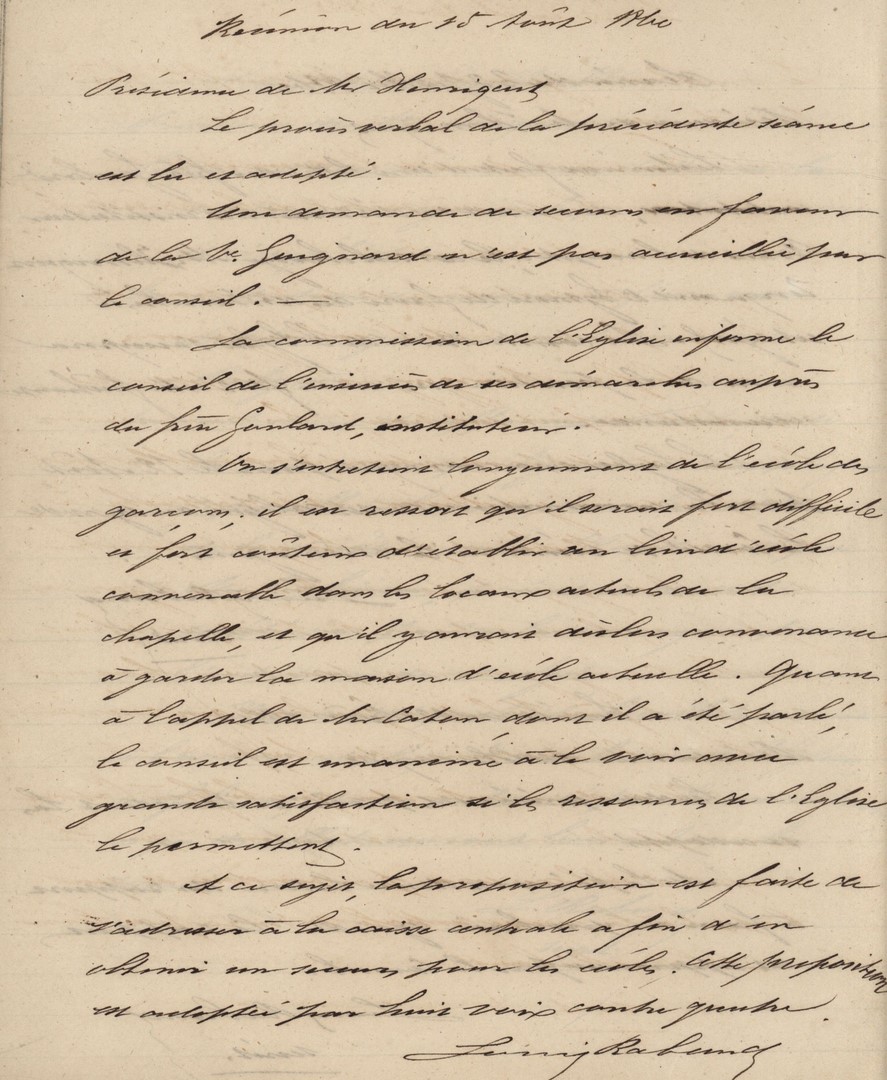 Réunion du 15 Août 1860
Présidence de Mr Henriquet
Le procès verbal de la précédente séance
est lu et adopté.
Une demande de secours en faveur
de la Ve. Guignard n'est pas accueillie par
le conseil. —
La commission de l'Eglise informe le
conseil de l'insuccès de ses démarches auprès
du frère Goulard, instituteur.
On s'entretient longuement de l'école des
garçons; il en ressort qu'il serait fort difficile
et fort coûteux d'établir un lieu d'école
convenable dans les locaux actuels de la
chapelle, et qu'il y aurait dèslors convenance
à garder la maison d'école actuelle. Quant
à l'appel de Mr Caton, dont il a été parlé,
le conseil est unanime à le voir avec
grande satisfaction si les ressources de l'Eglise
le permettent.
A ce sujet, la proposition est faite de
s'adresser à la caisse centrale afin d'en
obtenir un secours pour les écoles. Cette proposition
est adoptée par huit voix contre quatre.
Louis Rabaud